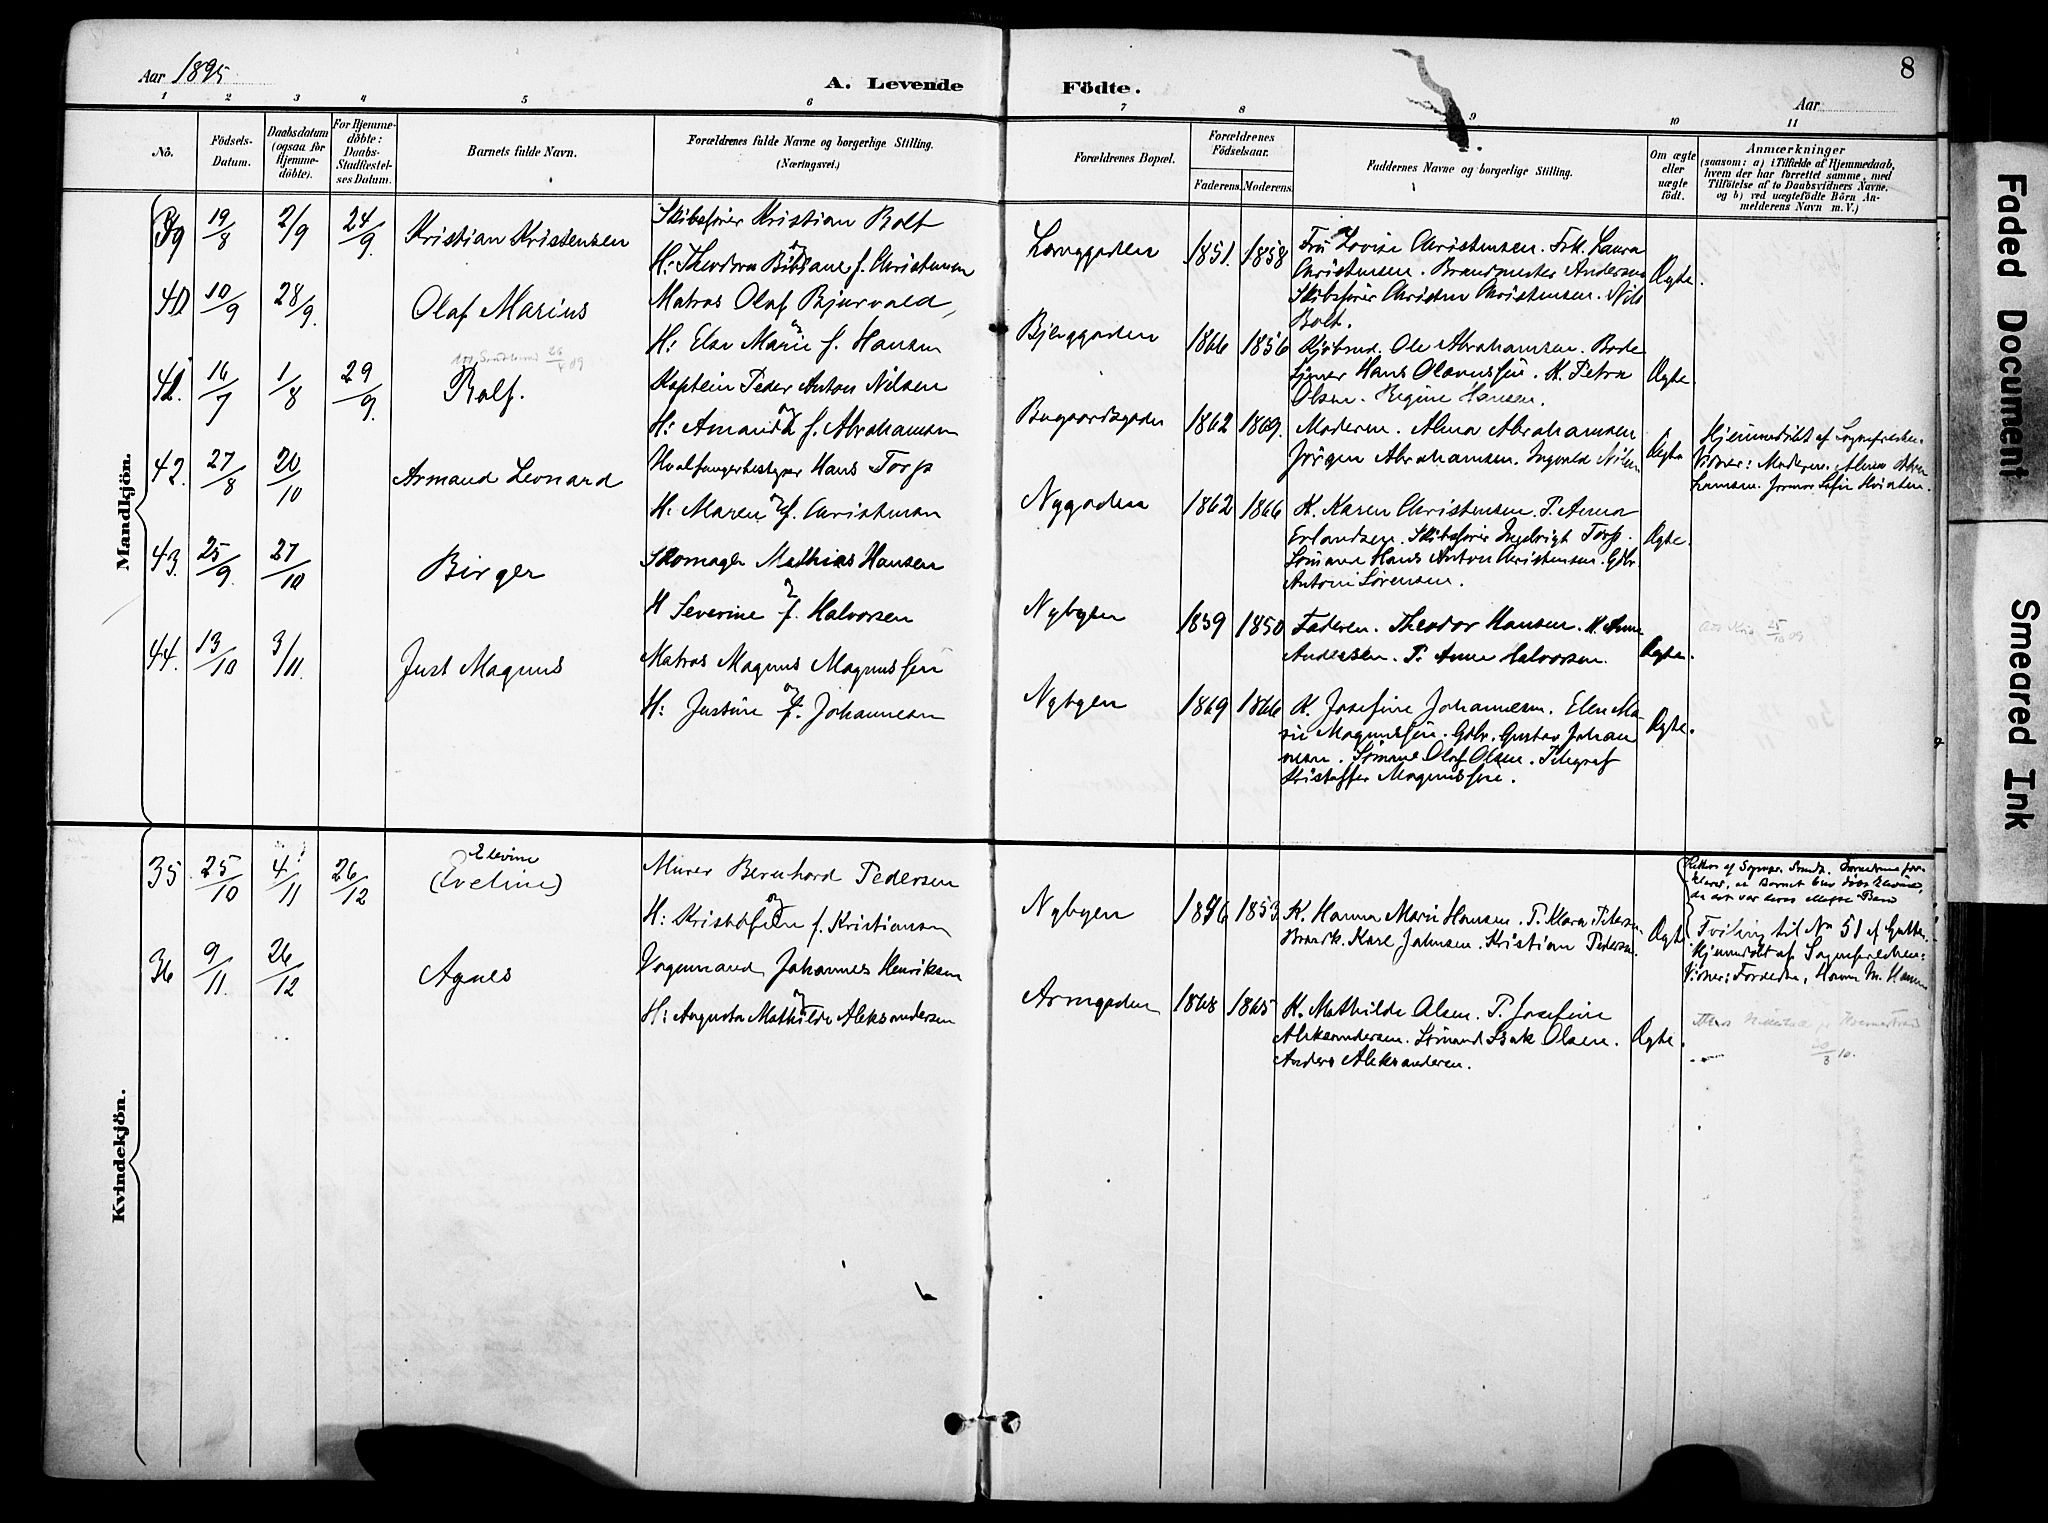 Aar 1895
A. Levende
Födte.
Aar
8
1 2 3 4 5 6 7 8 9 10 11
Nö.
Födsels-
Datum.
Daabsdatum
(ogsaa for
Hjemme-
döbte).
For Hjemme-
döbte:
Daabs-
Stadfæstel-
ses Datum.
Barnets fulde Navn.
Forældrenes fulde Navne og borgerlige Stilling.
(Næringsvei.)
Forældrenes Bopæl.
Forældrenes
Födselsaar.
Faderens. Moderens.
Faddernes Navne og borgerlige Stilling.
Om ægte
eller
uægte
födt.
Anmærkninger
(saasom: a) i Tilfælde af Hjemmedaab,
hvem der har forrettet samme, med
Tilföielse af to Daabsvidners Navne.
og b) ved uægtefödte Börn An-
melderens Navn m. V.)
Mandkjön.
39 19/8 2/9 24/9. Kristian Kristensen
Skibsfører Kristian Bolt
og
H: Theodora Bibiane f. Christensen
Langgaden 1851. 1858
Fru Lovise Christensen. Frk. Laura
Christensen. Brandmester Andersen
Skibsfører Christen Christensen. Nils
Bolt.
Ægte.
40 10/9 28/9. Olaf Marius
Matros Olaf Bjurvald,
og
H: Else Marie f. Hansen
Bjerggaden 1866 1856
Ole Abrahamsen.
Hans Olavussen. K. Petra
Olsen. Regine Hansen.
Ægte.
41. 16/7 1/8 29/9. Rolf.
26/4 09
Kaptein Peder Anton Nilsen
og
H: Amanda f. Abrahamsen
Bugaardsgaden 1862 1869.
Moderen. Alma Abrahamsen
Jörgen Abrahamsen. Ingvald Nilsen
Ægte
Hjemmedöbt af Sognepresten.
Vidner: Moderen. Alma Abra
hamsen.
42. 27/8 20/10 Armand Leonard
Hvalfangerbestyrer Hans Torp
og
H: Maren f. Christensen
Nygaden 1862 1866
K. Karen Christensen. P. Anna
Erlandsen. Skibsfører Ingebrigt Torp.
Sömand Hans Anton Christensen. Gdbr.
Anton Sörensen.
Ægte.
43. 25/9. 27/10 Birger
Skomager Mathias Hansen
og
H Severine f. Halvorsen
Nybyen 1859 1850
Faderen. Theodor Hansen. K. Anne
Andersen. P. Anne Halvorsen.
Ægte.
25/10 09
44. 13/10 3/11. Just Magnus
Matros Magnus Magnussen
og
H: Justine f. Johannesen
Nybyen 1869 1866
K. Josefine Johannesen. Elen Ma-
rie Magnussen. Gdbr. Gustav Johan
nesen. Sömand Olaf Olsen. Telegraf
Kristoffer Magnussen.
Ægte.
Kvindekjön.
35 25/10 4/11 26/12 Elevine
(Eveline)
Murer Bernhard Pedersen
og
H: Kristofine f. Kristiansen
Nybyen 1846 1853
K. Hanna Marie Hansen. P. Klara Petersen
Karl Johnsen. Kristian Pedersen.
Ægte
Tvilling til No 51 af Gutter.
Hjemmedöbt af Sognepresten:
Vidner: Forældre, Hanna M. Hansen
36 9/11. 26/12 Agnes
Vognmand Johannes Henriksen
og
H: Augusta Mathilde Aleksandersen
Armgaden 1868 1865
K. Mathilde Olsen. P. Josefine
Aleksandersen. Sömand Isak Olsen.
Anders Aleksandersen.
Ægte.
Faded Document
Smeared Ink